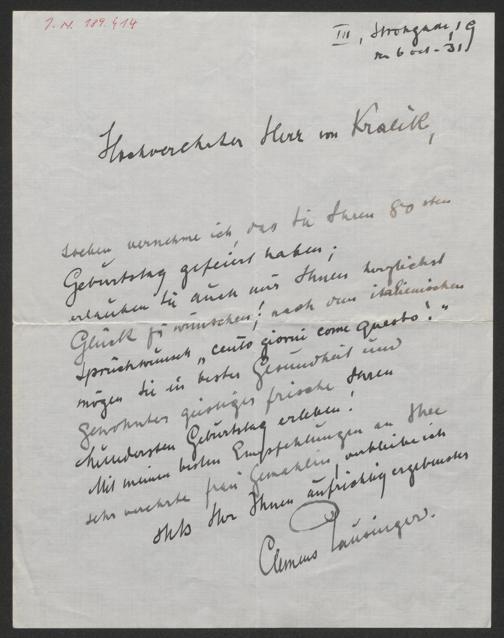 J. N. 189.414
III, Strohgasse 19
den 6 oct. 31
Hochverehrter Herr von Kralik,
soeben vernehme ich, das Sie Ihren 80sten
Geburtstag gefeiert haben;
erlauben Sie auch mir Ihnen herzlichst
Glück zu wünschen! nach dem italienischen
Spruchwunsch „cento giorni come questo!“
mögen Sie in bester Gesundheit und
gewohnter geistiger frische Ihren
hundersten Geburtstag erleben!
Mit meinen besten Empfehlungen an Ihre
sehr verehrte frau Gemahlin, verbleibe ich
stets Ihr Ihnen aufrichtig ergebenster
Clemens Pausinger.